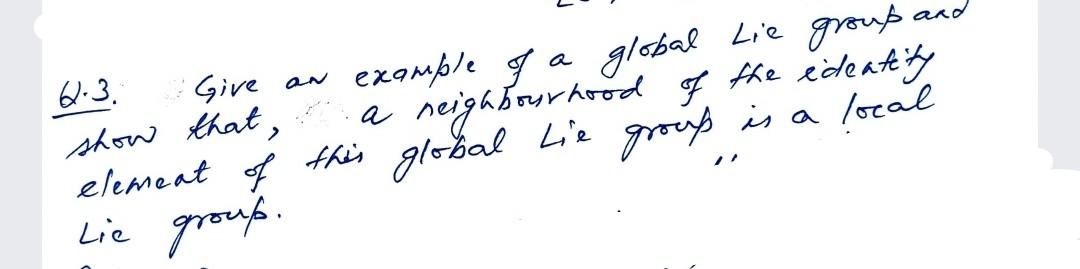 Q.3. Give an example of a global Lie group and
show that, a neighbourhood of the eideatity
element of this global Lie group is a local
Lie group.